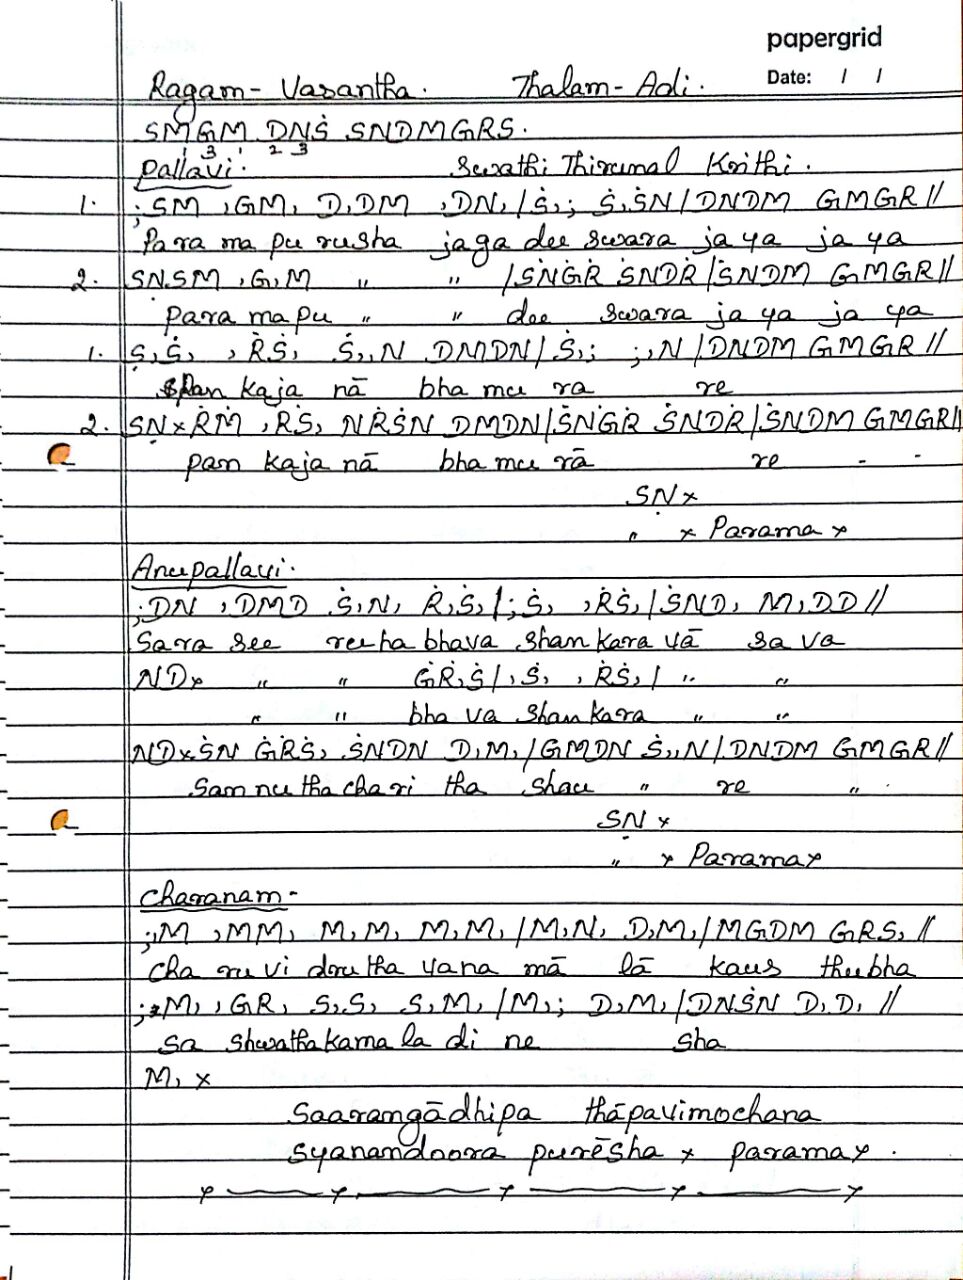 papergrid
Date: / /
Ragam- Vasantha. Thalam- Adi.
SMGM DNṠ SNDMGRS.
3 1 2 3
Pallavi. Swathi Thirunal Krithi.
1. ;SM ,GM, D,DM ,DN, /Ṡ,; Ṡ,ṠN/DNDM GMGR//
Para ma pu rusha jaga dee swara ja ya ja ya
2. SṆSM ,G,M " " /ṠNĠṘ ṠNDṘ/ṠNDM GMGR//
para ma pu " " dee swara ja ya ja ya
1. S,Ṡ, ,ṘṠ, Ṡ,,N DMDN/Ṡ,; ;,N/DNDM GMGR//
pan kaja nā bha mu ra re
2. SṆxṘṀ ,ṘṠ, NṘṠN DMDN/ṠNĠṘ ṠNDṘ/ṠNDM GMGR//
pan kaja nā bha mu rā re - -
SṆ x
" x Parama x
Anupallavi.
;DN ,DMD Ṡ,N, Ṙ,Ṡ,/;Ṡ, ,ṘṠ,/ṠND, M,DD//
Sara see ruha bhava shan kara vā sa va
NDx " " ĠṘ,Ṡ/,Ṡ, ,ṘṠ,/ " "
" " bha va shan kara " "
NDxṠN ĠṘṠ, ṠNDN D,M,/GMDN Ṡ,,N/DNDM GMGR//
Sam nu tha cha ri tha shau " re " .
SṆ x
" x Parama x
Charanam-
;,M ,MM, M,M, M,M,/M,N, D,M,/MGDM GRS,//
Cha ru vi dru tha vana mā lā kaus thubha
;M, ,GR, S,S, S,M,/M,; D,M,/DNṠN D,D,//
sa shwatha kama la di ne sha
M, x
Saarangādhipa thāpavimochana
syanandoora purēsha x parama x .